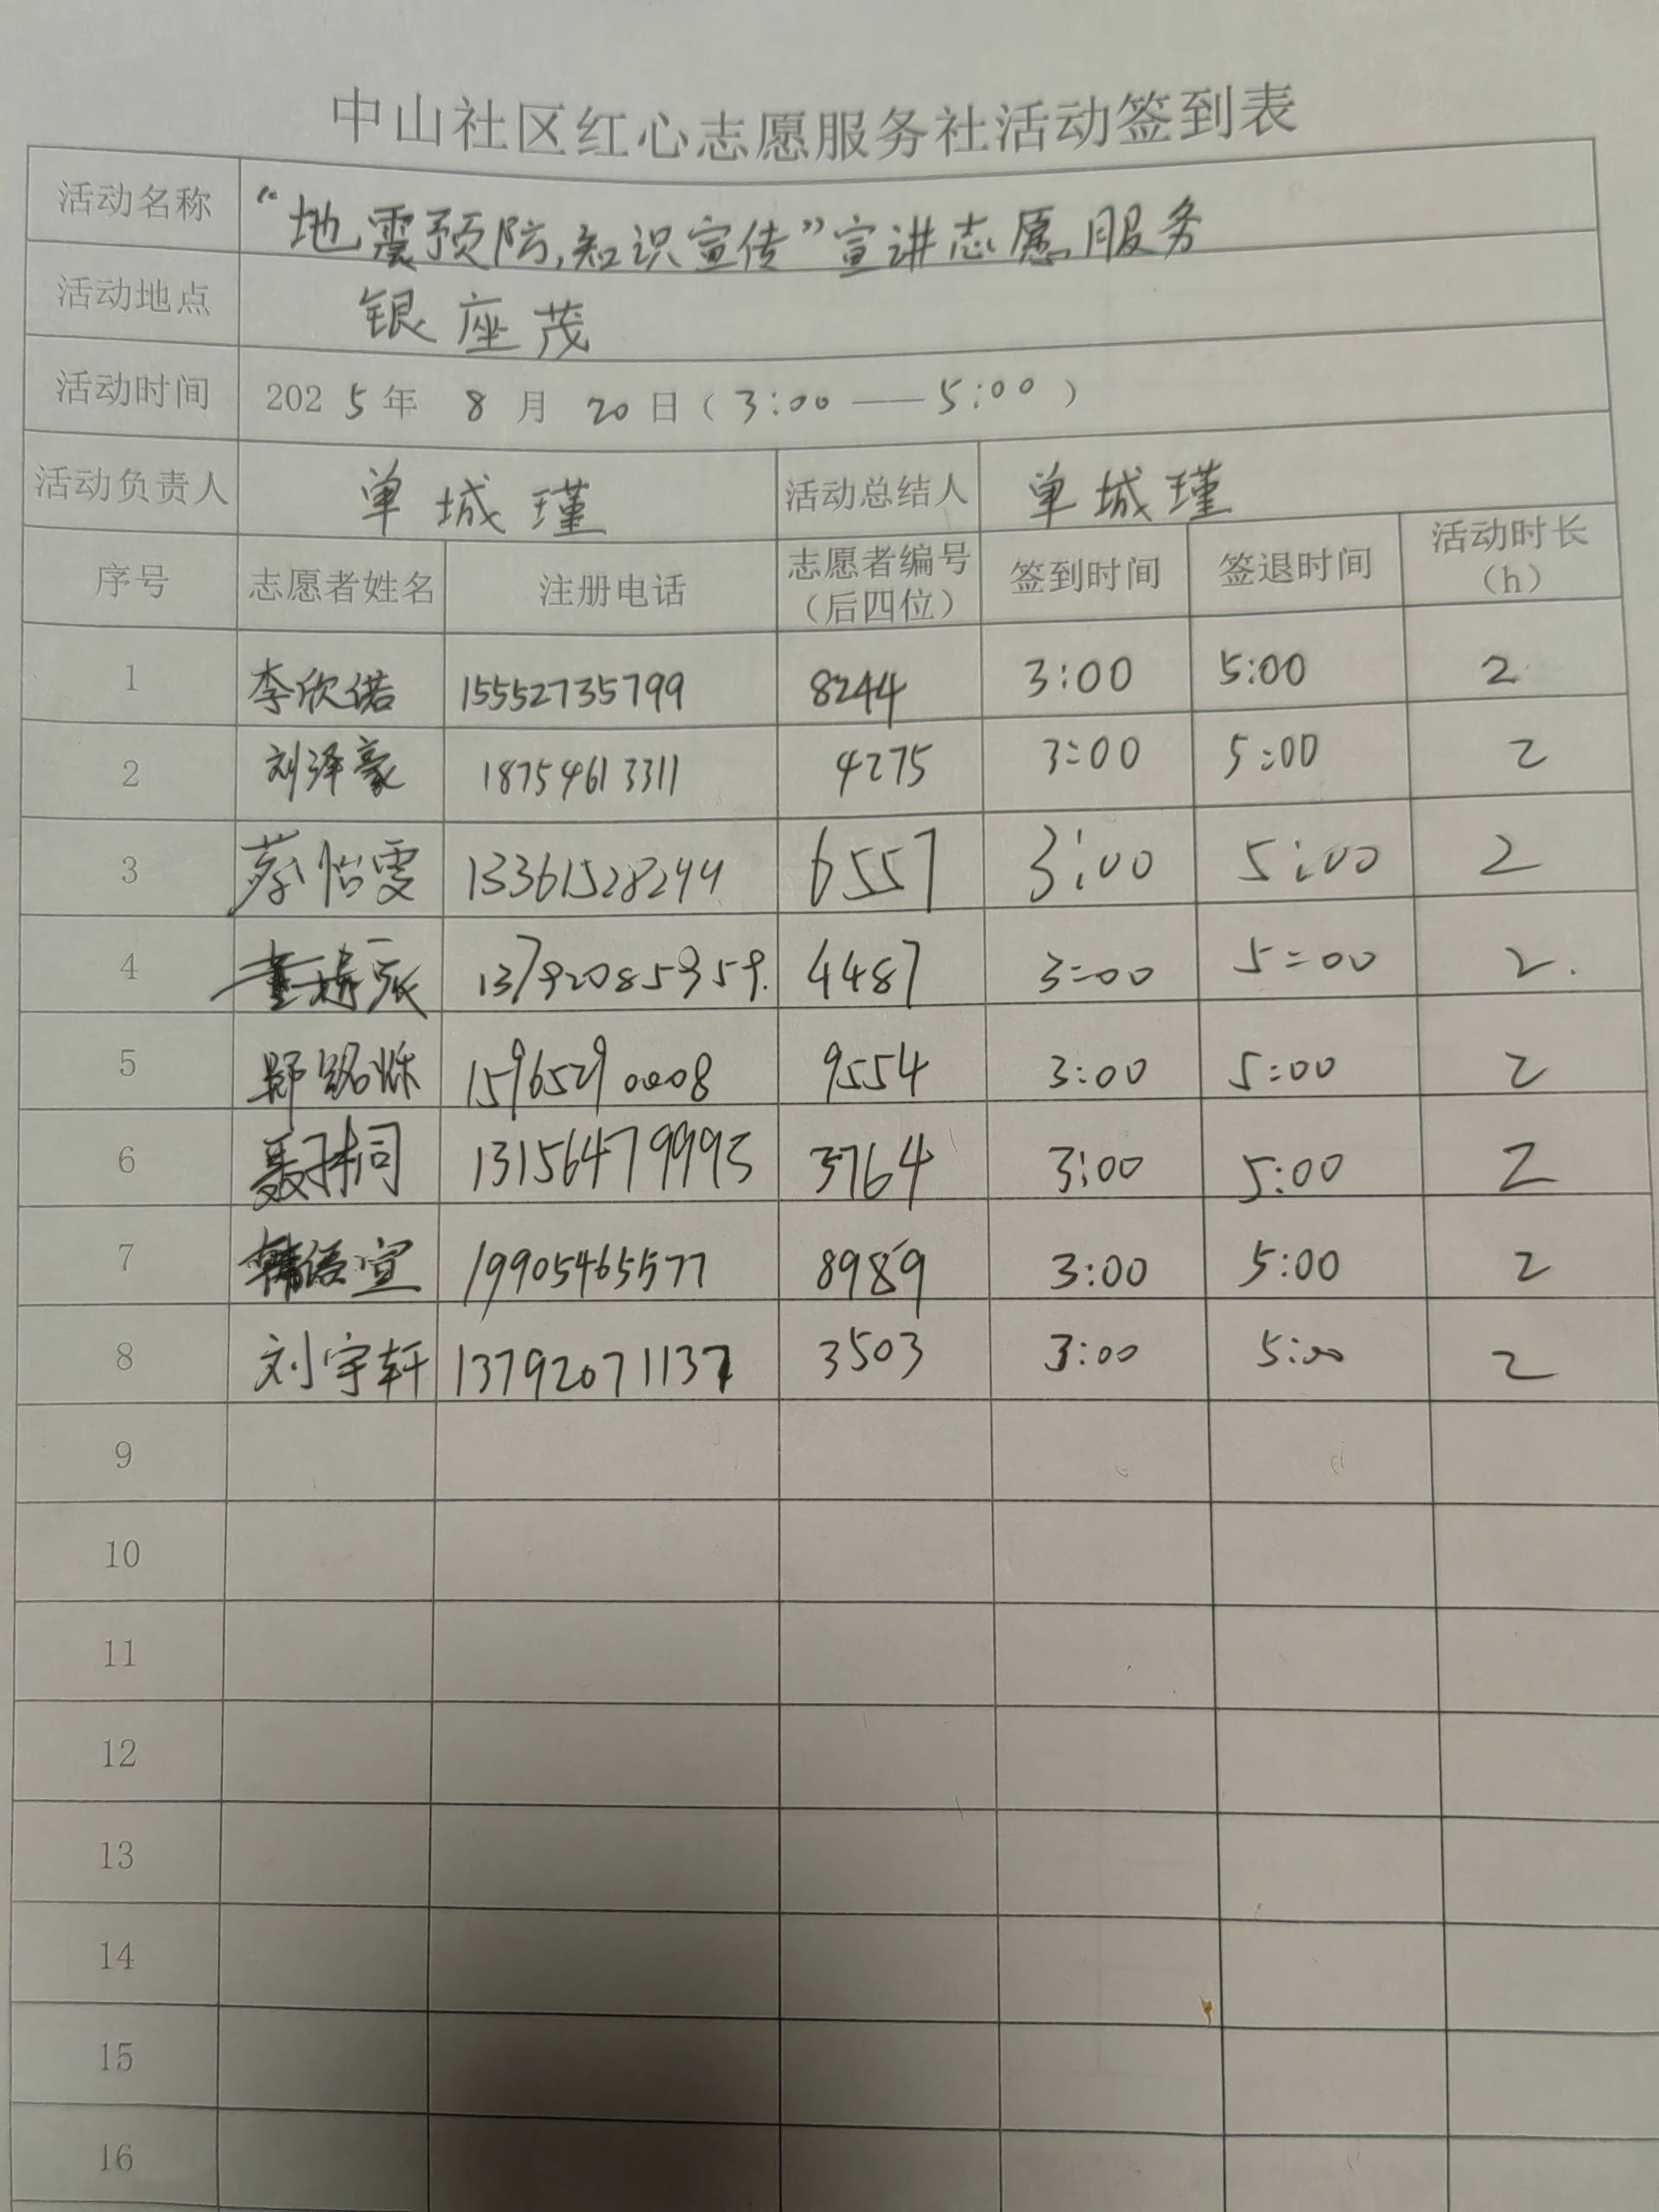 中山社区红心志愿服务社活动签到表
活动名称 “地震预防,知识宣传”宣讲志愿服务
活动地点 银座茂
活动时间 2025年 8月 20日(3:00——5:00)
活动负责人 单城瑾 活动总结人 单城瑾
序号 志愿者姓名 注册电话 志愿者编号(后四位) 签到时间 签退时间 活动时长(h)
1 李欣偌 15552735799 8244 3:00 5:00 2
2 刘泽豪 18754613311 4275 3:00 5:00 2
3 蔡怡雯 13361528244 6557 3:00 5:00 2
4 13792085959. 4487 3:00 5:00 2.
5 郑铭烁 15965290008 9554 3:00 5:00 2
6 13156479993 3764 3:00 5:00 2
7 韩语宣 19905465577 8989 3:00 5:00 2
8 刘宇轩 13792071137 3503 3:00 5:00 2
9
10
11
12
13
14
15
16